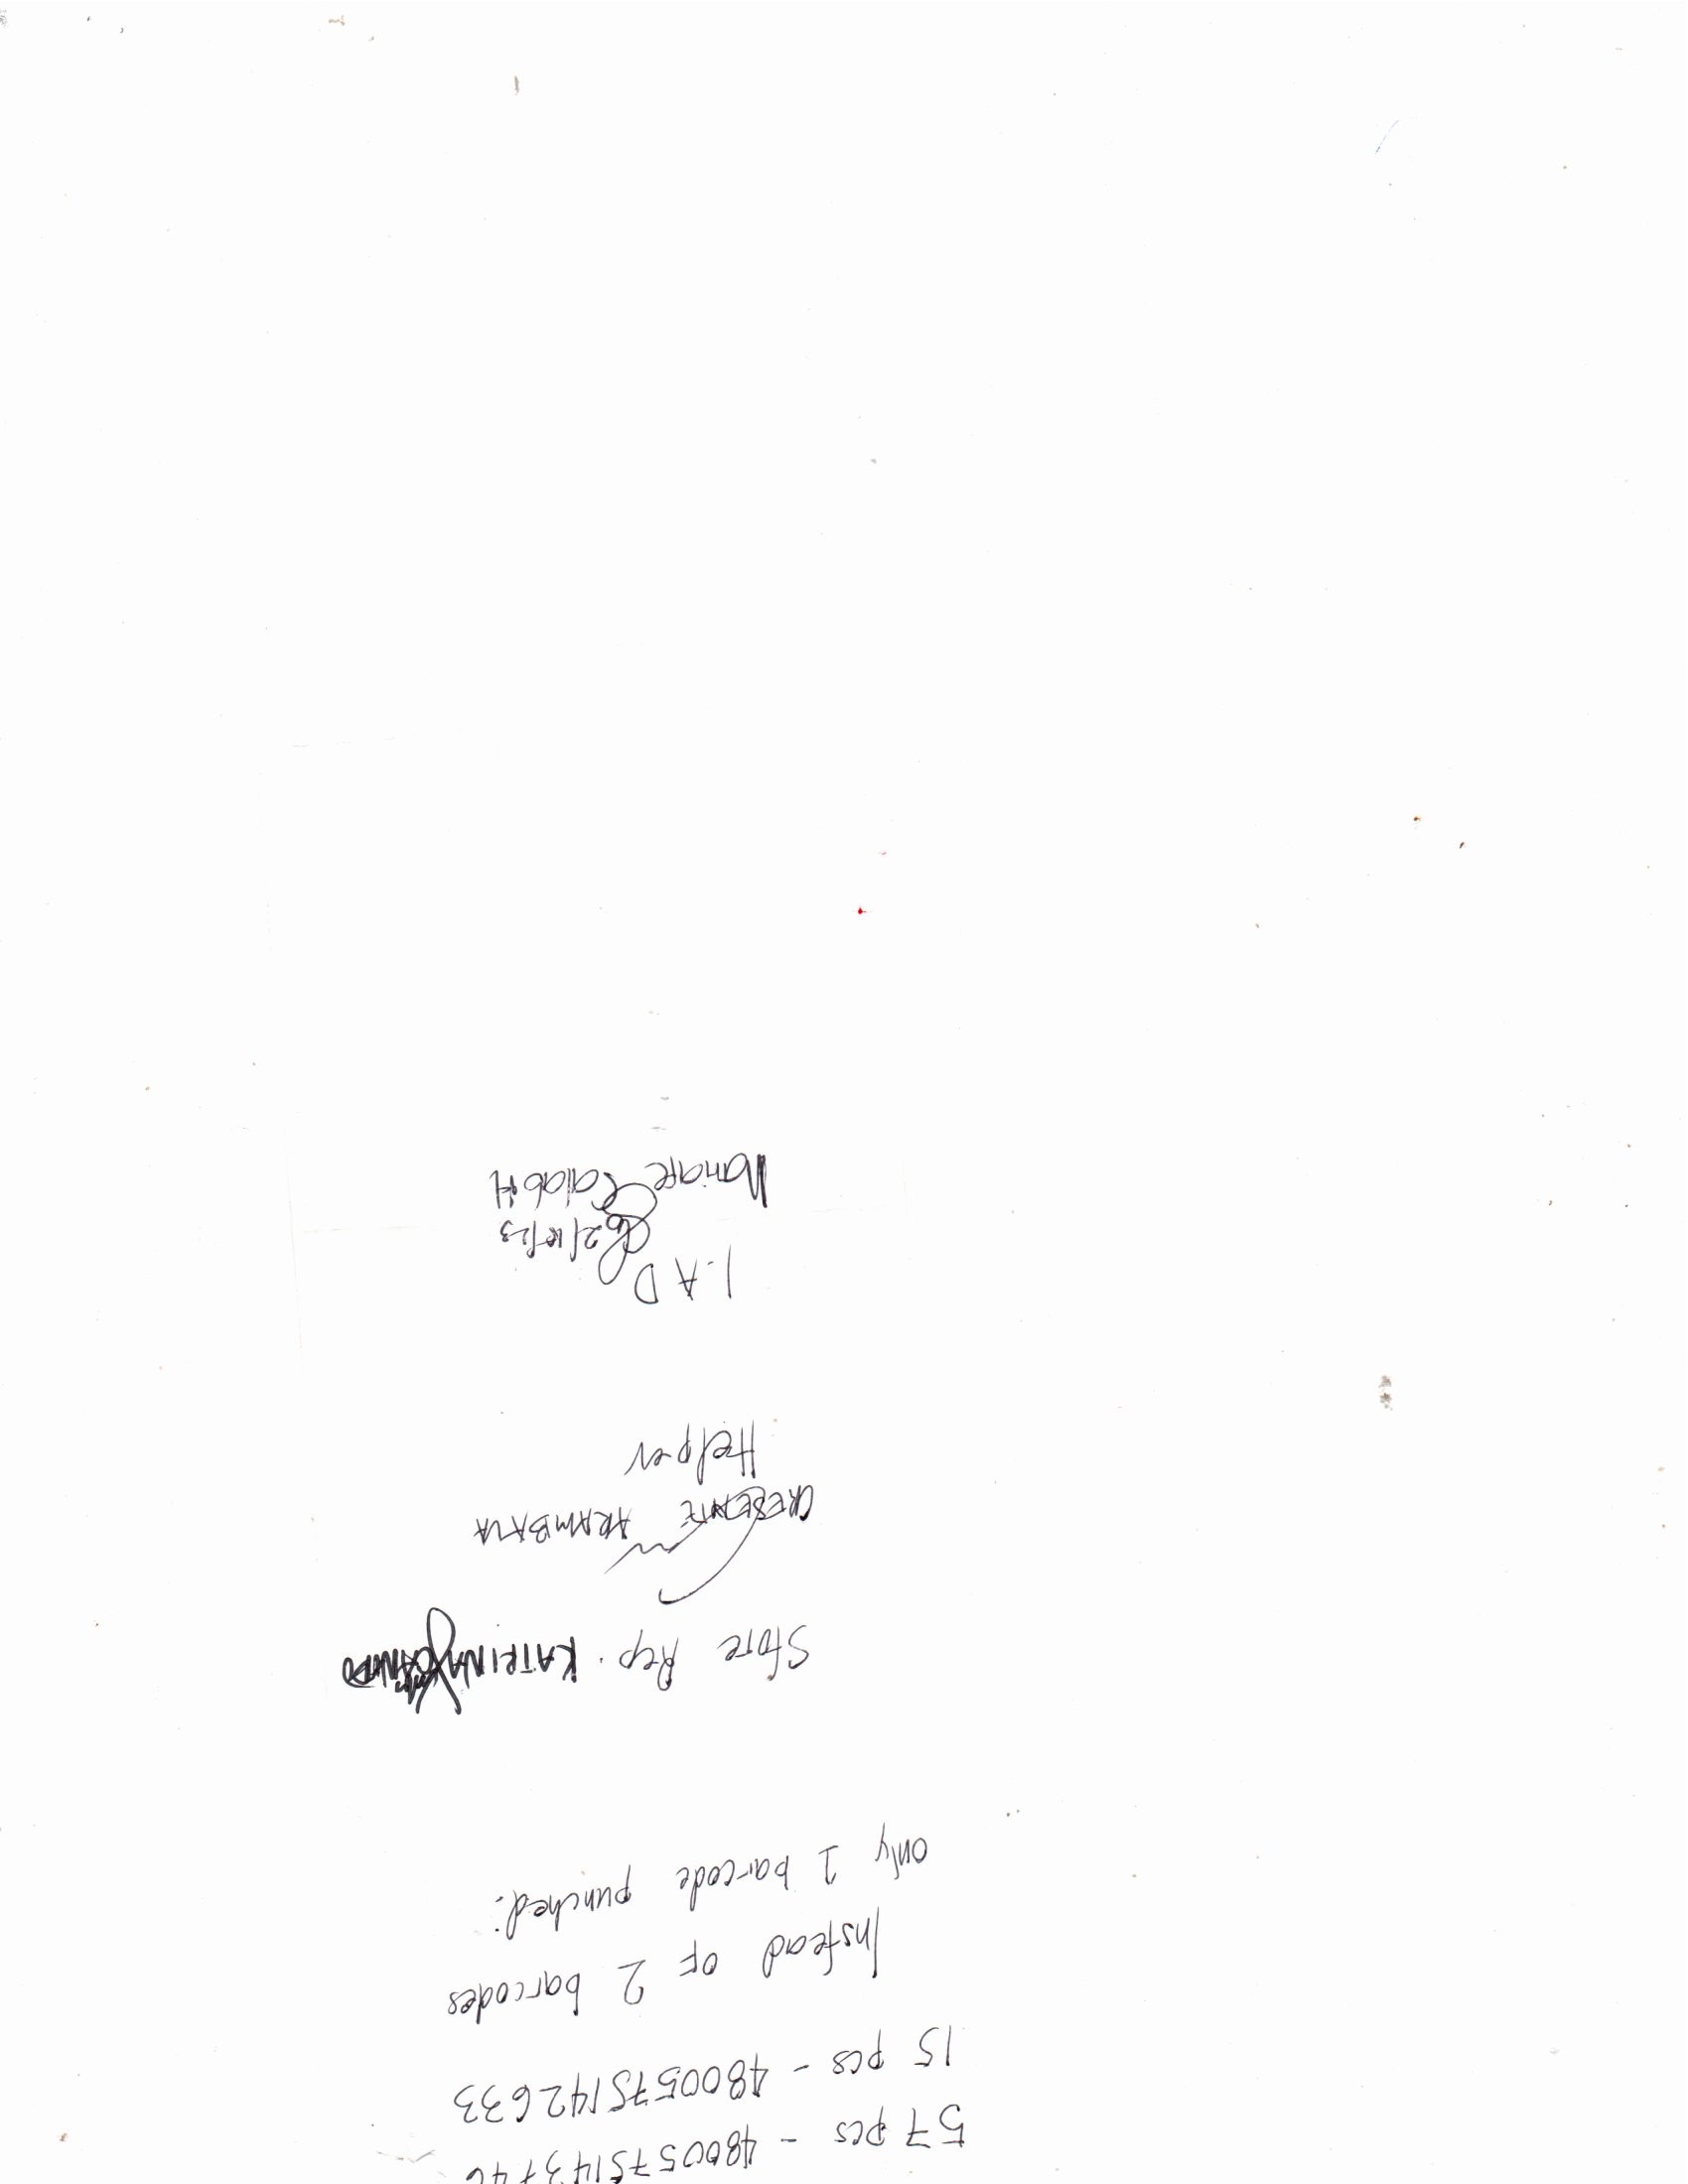 57 pcs - 4800575143746
15 pcs - 4800575142633
Instead of 2 barcodes
only 1 barcode punched.
Store Rep. KATRINA
ARAMBALA
Helper
I.A D
2/10/23